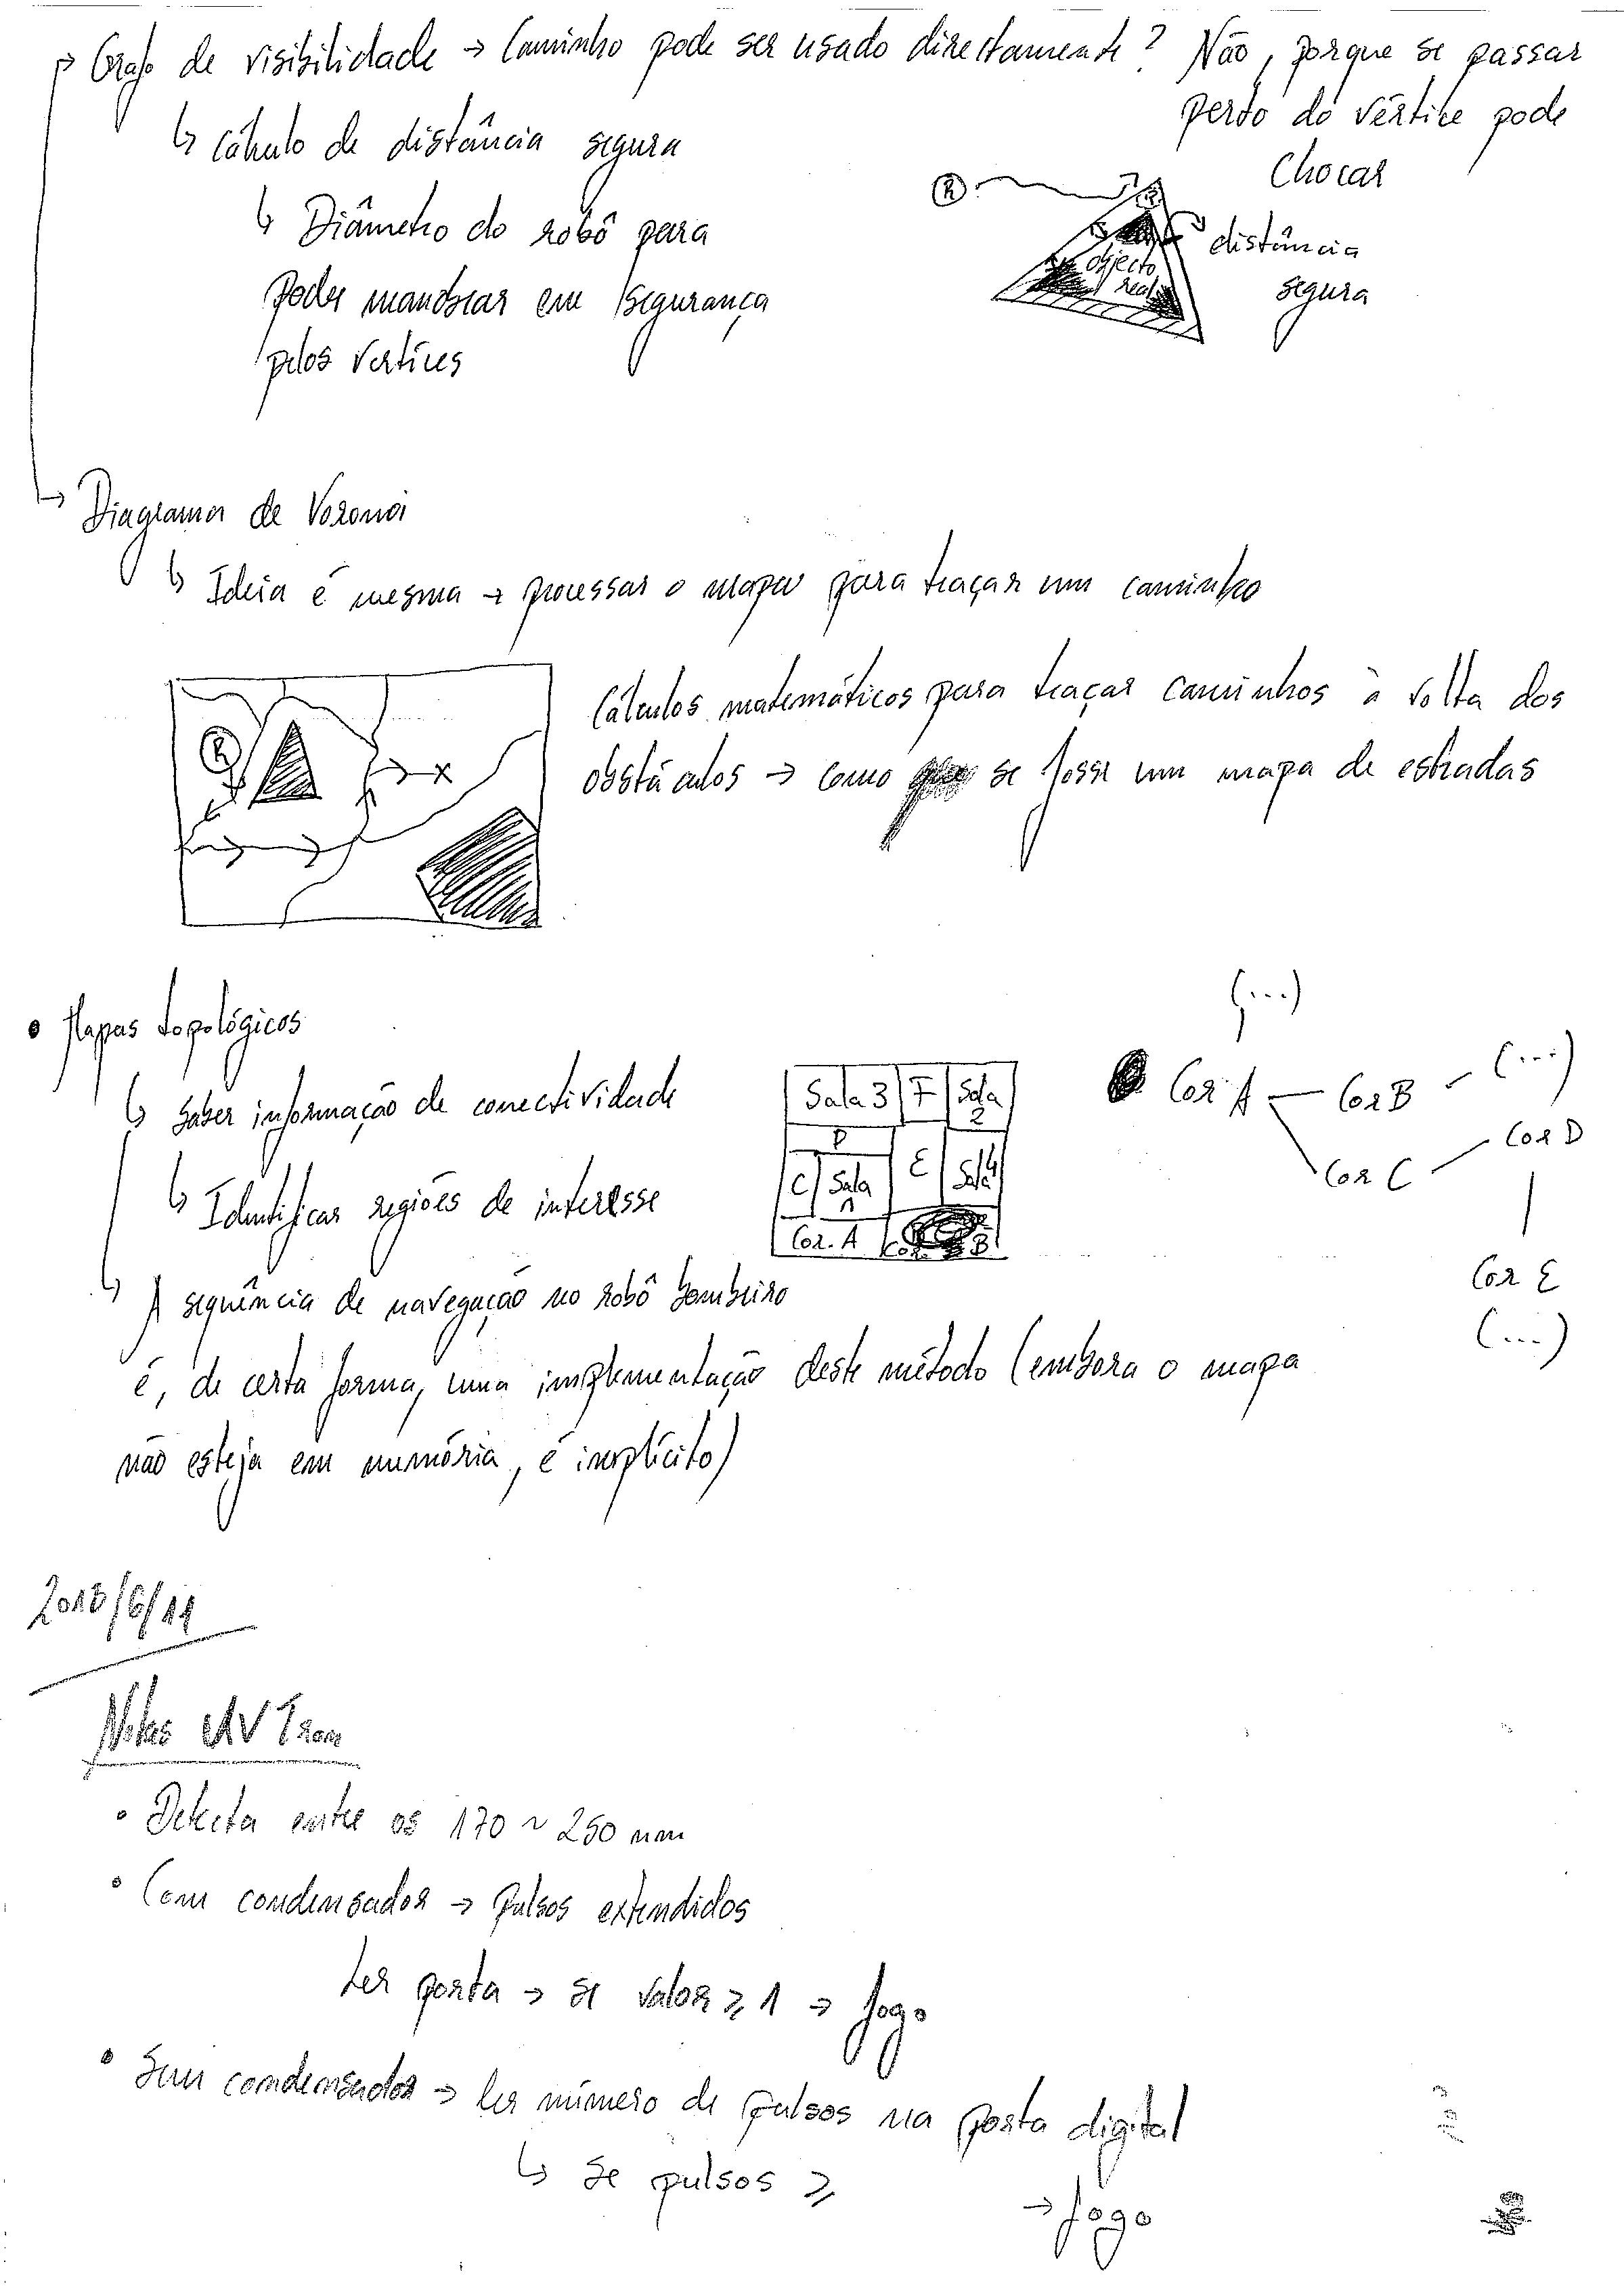 ↱ Grafo de visibilidade → Caminho pode ser usado directamente? Não, porque se passar
perto do vértice pode
chocar
↳ Cálculo de distância segura
↳ Diâmetro do robô para
poder manobrar em segurança
pelos vertices
R
objecto
real
distância
segura
↳ Diagrama de Voronoi
↳ Ideia é mesma → processar o mapa para traçar um caminho
Cálculos matemáticos para traçar caminhos à volta dos
obstáculos → como se fosse um mapa de estradas
R
x
• Mapas topológicos
↳ Saber informação de conectividade
↳ Identificar regiões de interesse
Sala 3 F Sala 2
D
C Sala 1 E Sala 4
Cor. A Cor. B
(...)
Cor A — Cor B - (...)
Cor C — Cor D
Cor E
(...)
↳ A sequência de navegação no robô bombeiro
é, de certa forma, uma implementação deste método (embora o mapa
não esteja em memória, é implícito)
2013/6/11
Notas UV Tron
• Detecta entre os 170 ~ 250 nm
• Com condensador → pulsos extendidos
Ler porta → se valor ≥ 1 → fogo
• Sem condensador → ler número de pulsos na porta digital
↳ Se pulsos ≥ → fogo